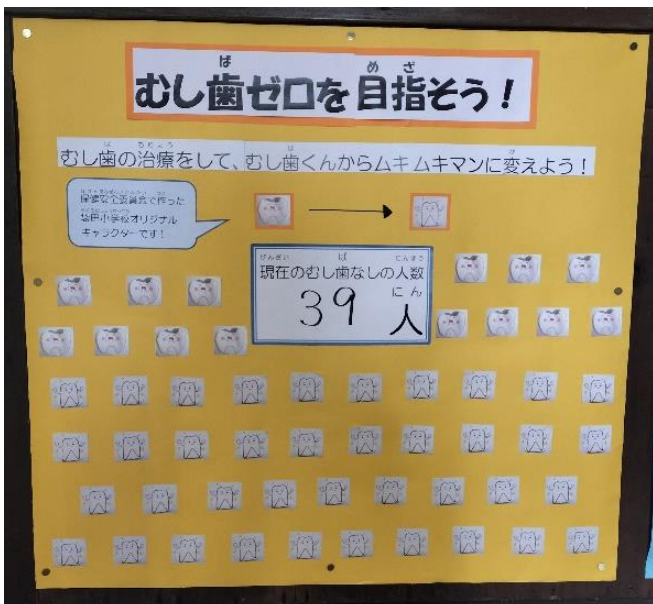 むし歯ゼロを目指そう！
ば めざ
むし歯の治療をして、むし歯くんからムキムキマンに変えよう！
保健安全委員会で作った
袋田小学校オリジナル
キャラクターです！
げんざい ば にんずう
現在のむし歯なしの人数
39人
にん